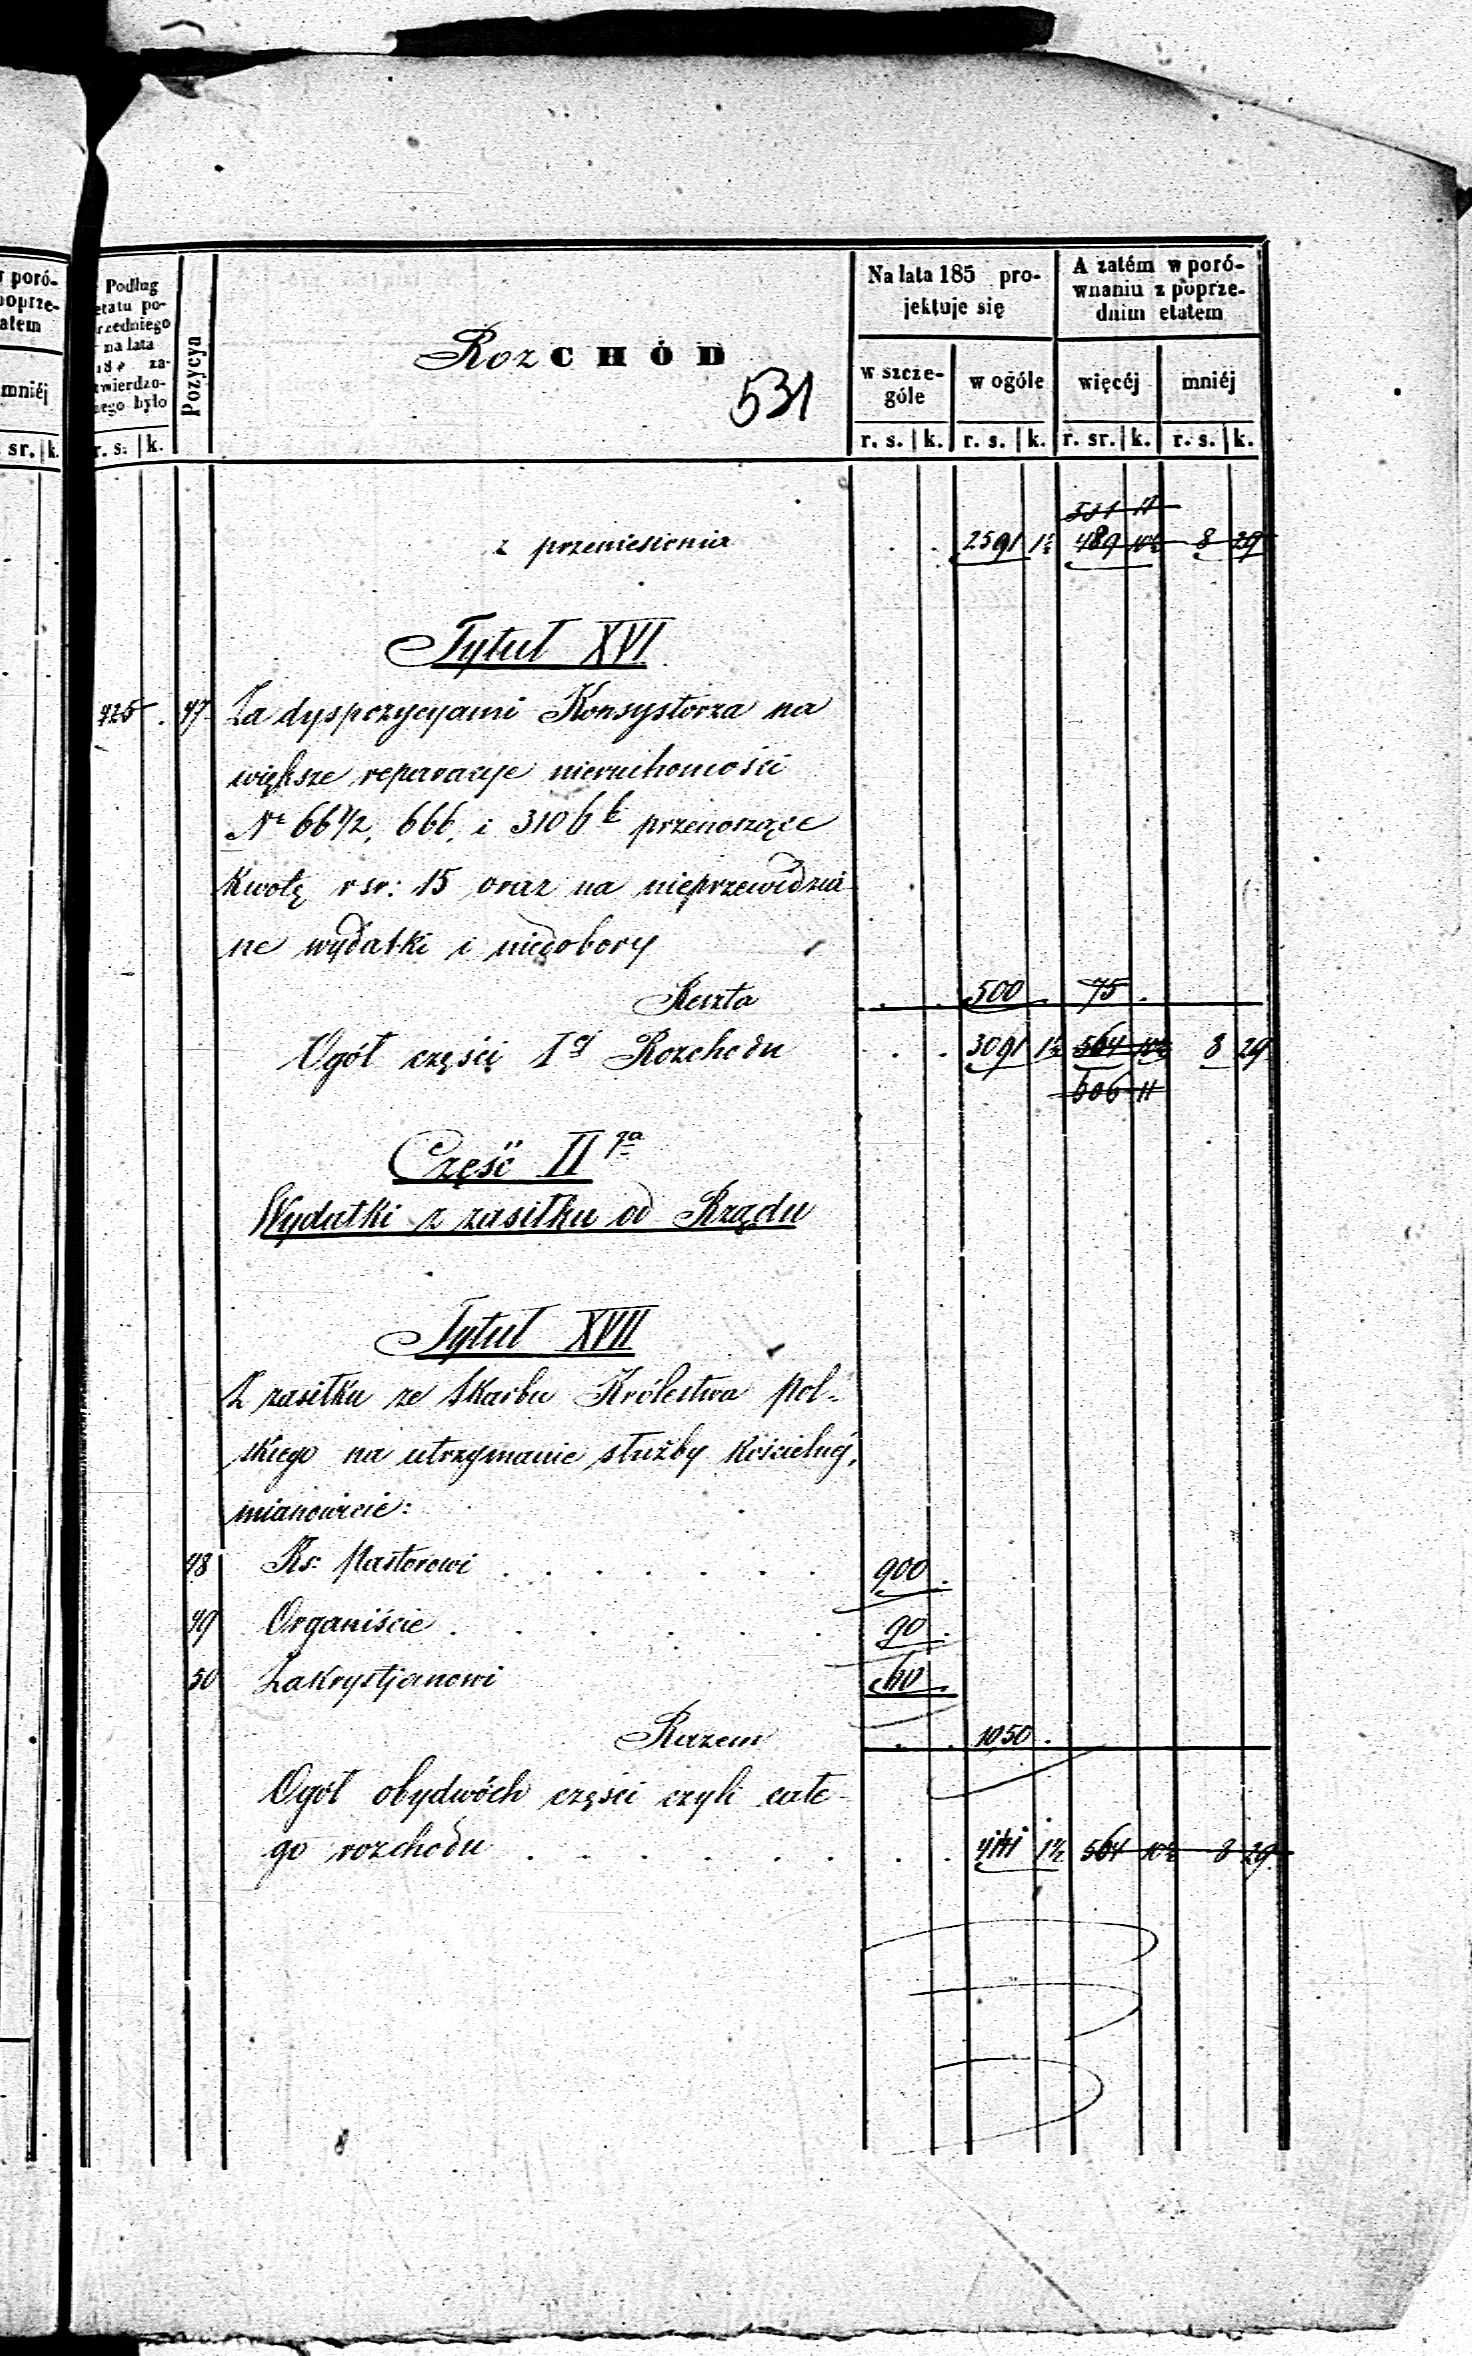 w poró-
poprze-
atem
mniéj
sr. k.
Podług
etatu po-
przedniego
na lata
184 za-
twierdzo-
nego było
r. s. k.
Pozycya
RozCHÓD
531
Na lata 185 pro-
jektuje się
w szcze-
góle
w ogóle
r. s. k. r. s. k.
A zatém w poró-
wnaniu z poprze-
dnim etatem
więcéj mniéj
r. sr. k. r. s. k.
531 11
z przeniesienia . . 2591 1½ 489 10½ 8 29
Tytuł XVI
425 . 47 Za dyspozycyami Konsystorza na
większe reparacye nieruchomości
Nr 66 1/2, 666, i 3106 b przenoszące
Kwotę rsr: 15 oraz na nieprzewidzia
ne wydatki i niedobory
Reszta . . 500 75 .
Ogół części I éj Rozchodu . . 3091 1½ 564 10½ 8 29
606 11
Część II ga
Wydatki z zasiłku od Rządu
Tytuł XVII
Z zasiłku ze Skarbu Królestwa Pol-
skiego na utrzymanie służby Kościelnej,
mianowicie:
48 Ks: Pastorowi . . . . . . . 900 .
49 Organiście . . . . . . 90 .
50 Zakrystjanowi 60 .
Razem . . 1050 .
Ogół obydwóch części czyli całe-
go rozchodu . . . . . . . . . 4141 1½ 564 10½ 8 29